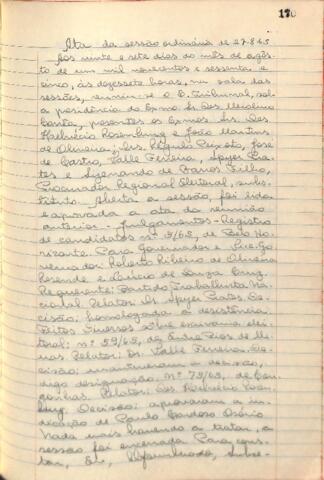 170
Ata da sessão ordinária de 27-8-65
Aos vinte e sete dias do mês de agôs-
to de um mil novecentos e sessenta e
cinco, às dezessete horas, na sala das
sessões, reuniu-se o E. Tribunal, sob a
presidência do Exmo. Sr. Des.
presentes os Exmos. Srs. Des.
Helvécio Rosenburg e João Martins
de Oliveira; Drs. Régulo Peixoto, José
de Castro, Valle Ferreira, Spyer Pra-
tes e de Barros Filho,
Procurador Regional Eleitoral, subs-
tituto. Aberta a sessão, foi lida
e aprovada a ata da reunião
anterior. Julgamentos - Registro
de candidatos nº 13/65, de Belo Ho-
rizonte. Para Governador e Vice-Go-
vernador: Roberto Ribeiro de Oliveira
Resende e de Souza Cruz.
Requerente: Partido Trabalhista Na-
cional. Relator: Dr. Spyer Prates. De-
cisão: homologada a desistência.
Feitos diversos sôbre escrivania elei-
toral: nº 59/65, de Entre Rios de Mi-
nas. Relator: Dr. Valle Ferreira. De-
cisão: mantiveram a decisão,
digo designação. nº 73/65, de Con-
gonhas. Relator: Des. Helvécio Rosen-
burg. Decisão: aprovaram a in-
dicação de Paulo Cardoso Osório
Nada mais havendo a tratar, a
sessão foi encerrada. Para cons-
tar, Eu,